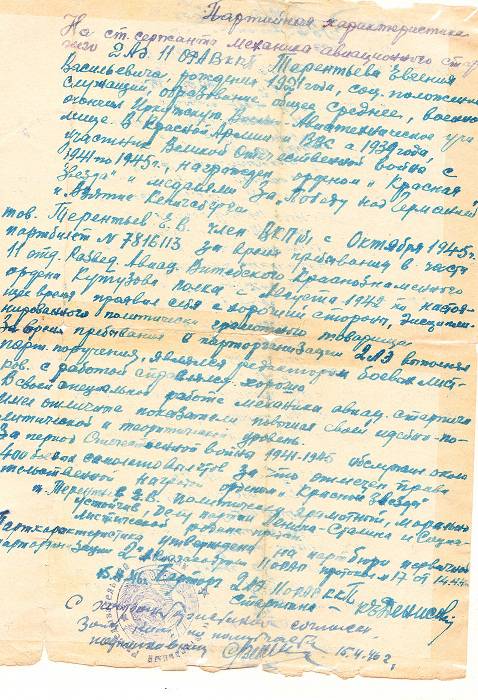 Партийная характеристика
На ст. сержанта механика авиационного стар
2АЭ 11 ОРАВККП Терентьева Евгения
Васильевича, рождения 1921 года, соц. положение
служащий, образование общее среднее, военное
окончил Иркутскую Военно Авиатехническое учи
лище. В Красной Армии ВВС с 1939 года,
участник Великой Отечественной войны с
1941 по 1945г, награжден орденом "Красная
Звезда" и медалями За Победу над Германией
и Взятие Кенигсберга
тов. Терентьев Е.В. член ВКП(б) с Октября 1945г.
партбилет N 7816113 за время пребывания в части
11 отд. Развед. Авиац. Витебского Краснознаменного
ордена Кутузова полка с Августа 1942 по настоя
щее время проявил себя с хорошей стороны, дисципли-
нированного политически грамотного товарища.
За время пребывания в парторганизации 2АЭ выполнял
парт. поручения, являлся редактором боевых лист-
ков. с работой справлялся хорошо
В своей специальной работе механика авиац. старшего
имел отличные показатели повышая свой идейно-по-
литический и теоретический уровень.
За период Отечественной войны 1941-1945 обслужил около
400 боевых самолетовылетов За что отмечен прави
тельственной наградой орденом "Красной Звезды"
т. Терентьев Е.В. политически грамотный, морально
устойчив, делу партии Ленина-Сталина и Социа-
листической родине предан.
Партхарактеристика утверждена на партбюро первичной
парторга-зации 2 Авиаэскадрилии протокол N 17 от 14.4.46
15.4.46г. Парторг 2АЭ 11 ОРАВККП
Старшина - Денисов
С характеристикой согласен
Зам. по политчасти
15.4.46 г.